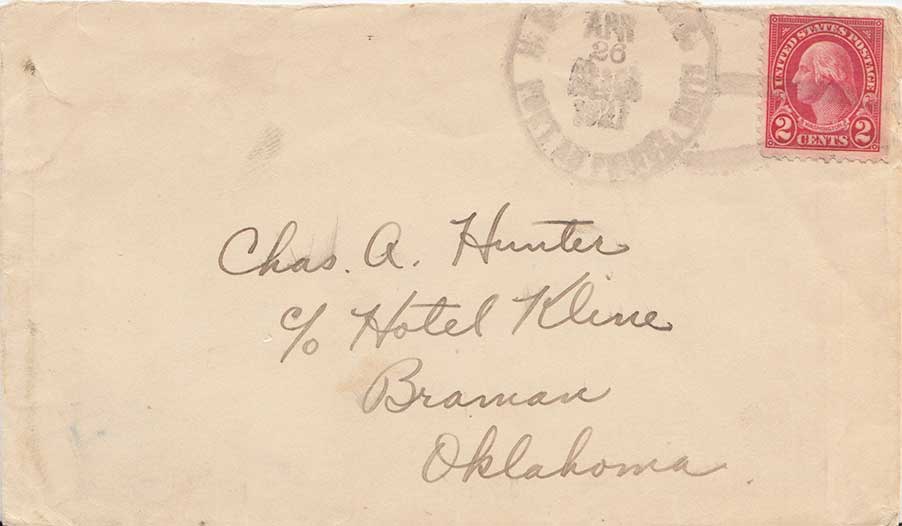 APR
26
UNITED STATES POSTAGE
WASHINGTON
2 CENTS 2
Chas. A. Hunter
c/o Hotel Kline
Braman
Oklahoma